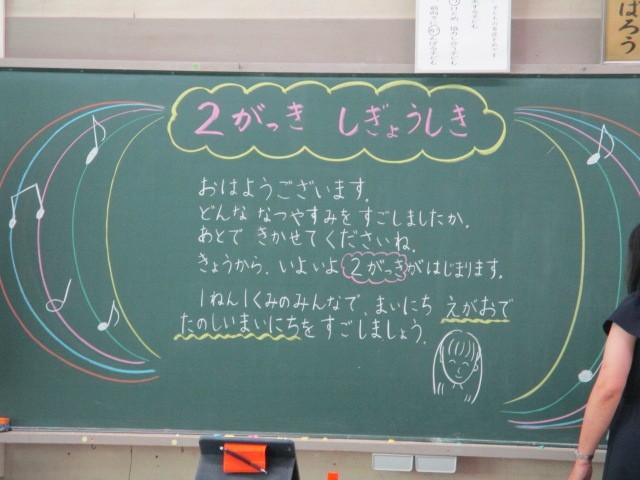 2がっき しぎょうしき
おはようございます。
どんな なつやすみを すごしましたか。
あとで きかせてくださいね。
きょうから、いよいよ 2がっきがはじまります。
1ねん1くみのみんなで、まいにち えがおで
たのしいまいにちをすごしましょう。
ばろう